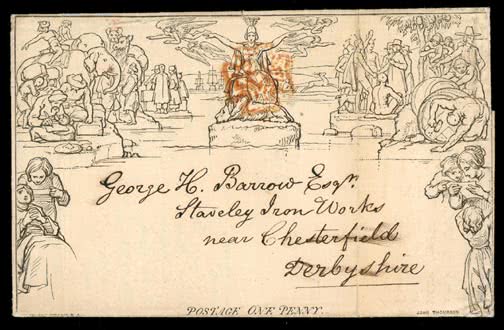 George H. Barrow Esqr.
Staveley Iron Works
near Chesterfield
Derbyshire
POSTAGE ONE PENNY.
JOHN THOMPSON